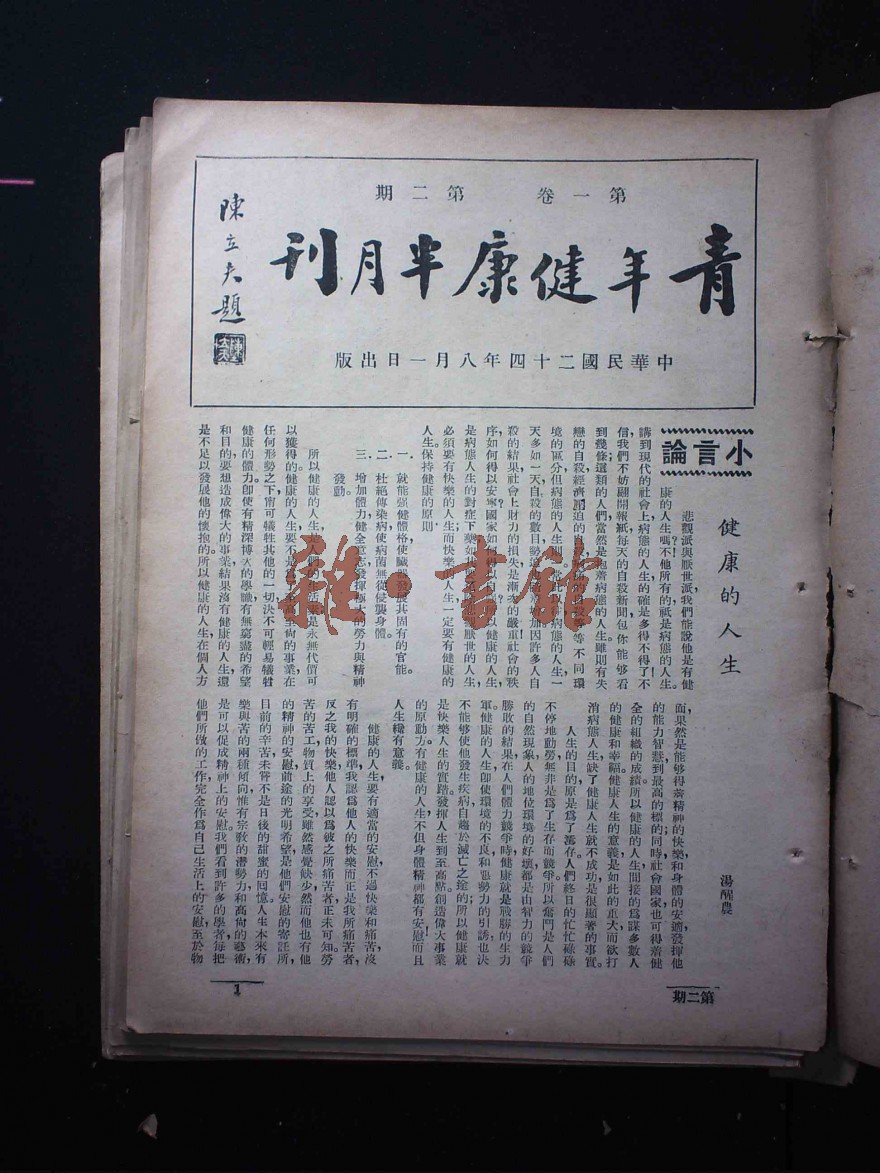 第一卷 第二期
青年健康半月刊
陳立夫題
中華民國二十四年八月一日出版
小言論
健康的人生
湯醒農
悲觀派與厭世派我們能說他是有健
康的人生嗎?不他所有的祇是病態的人生。
講到現代的社會上病態的人生的確是多得不得了!不
信我們不妨翻開報紙每天的自殺新聞包你能够看
到幾條這類的人們當然是抱着病態的人生雖則有失
境的區分但病態的人生則
天多如一天自殺的數目
殺的結果社會上財力的損失是漸次的嚴重社會的秩
序如何得以安寧?國家如何得以
是病態人生的對症下藥如
必須要有快樂的人生;而快樂
人生。保持健康的原則
一. 就能强健體格使臟器發展其固有的官能。
二. 杜絕傳染病使病菌無從侵襲身體。
三. 增加體力健全意志發揮極大的勞力與精神
發動。
所以健康的人生是人們的生活
以獲得的健康的人生要不
任何形勢之下甯可犧牲其他的一切決不可輕易犧牲
健康的體力。即使有精深博大的學識有無窮盡的希望
和目的要想造成偉大的事業結果沒有健康的人生,還
是不足以發展他的懷抱的。所以健康的人生在個人方
面,果然是能够得着精神的快樂和身體的安適發揮他
的能力智慧到最高的標的;同時社會國家也可得着健
全的組織的成績所以健康的人生間接的爲謀多數人
的健康和幸福。健康人生的意義是如此的重大而欲打
消病態人生缺了健康人生就不成功是很顯著的事實。
人生的目的原是爲了
不停地動勞無非是爲了生存而競爭所以奮鬥是人們
的自然現象人的地位環境的好壞都是由智力的競爭
勝敗的結果在人們體力競爭時健康就是戰勝的生力
軍。健康的人生即使環境的不良和惡勢力的引誘也決
不能够使他發生疾病自趨於滅亡之途的;所以健康就
是快樂人生的實踏發揮人生到至高點創造偉大事業
的原動力。有健康的人生,不但身體精神都有安慰而且
人生纔有意義。
健康的人生要有適當的安慰不過快樂和痛苦,沒
有明確的標準,我認爲他人的快樂而正是我所痛苦者,
反之我的快樂他人認以爲彼之所痛苦者正未可知。勞
苦的苦工物質上的享受,雖然感覺缺少,然而他也有他
的精神的安慰前途的光明希望,是他們安慰的寄託所,
目前的辛苦未嘗不是日後的甜蜜的回憶。人生本來有
樂與苦的兩種傾向惟有宗敎的潛勢力和高尚的藝術,
是可以促成精神上的安慰。我們看到許多的學者每把
他們所做的工作完全作爲自己生活上的安慰,至於物
第二期
1
雜·書館